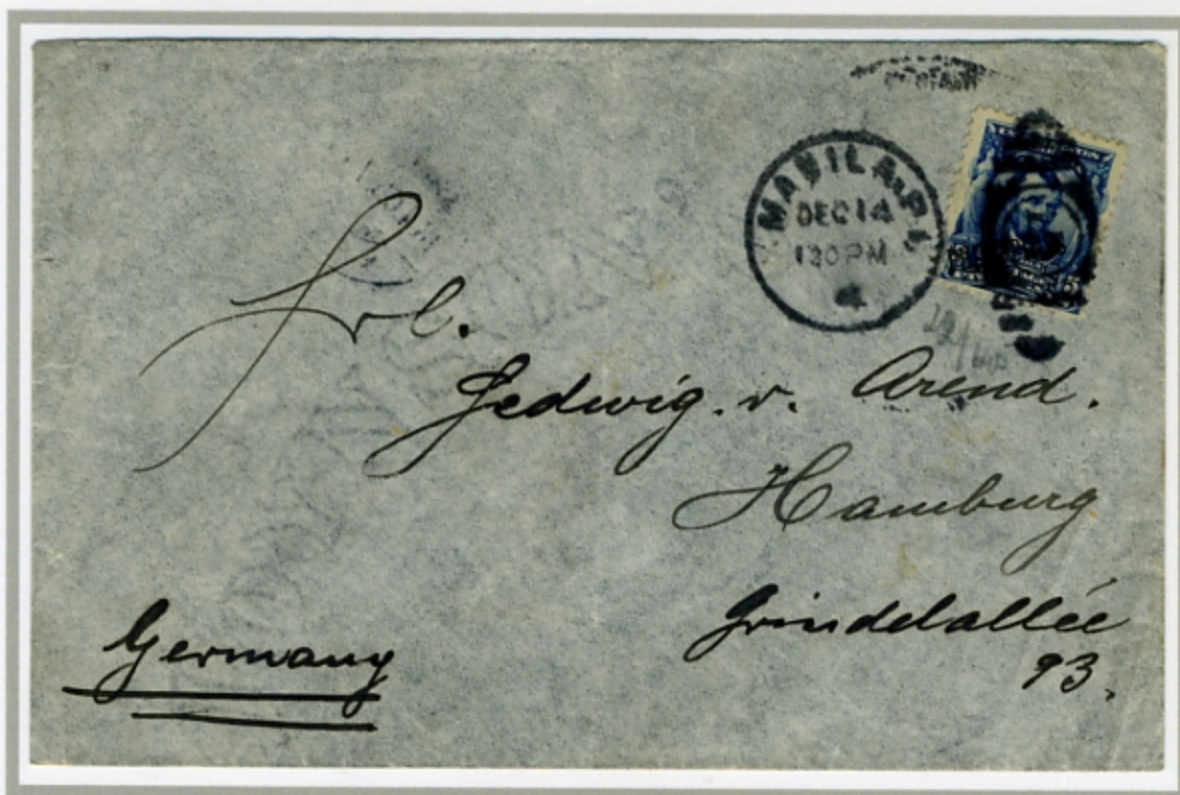 MANILA, P.I.
DEC 14
1 30 PM
Frl.
Hedwig. v. Arend.
Hamburg
Grindelallée
93.
Germany